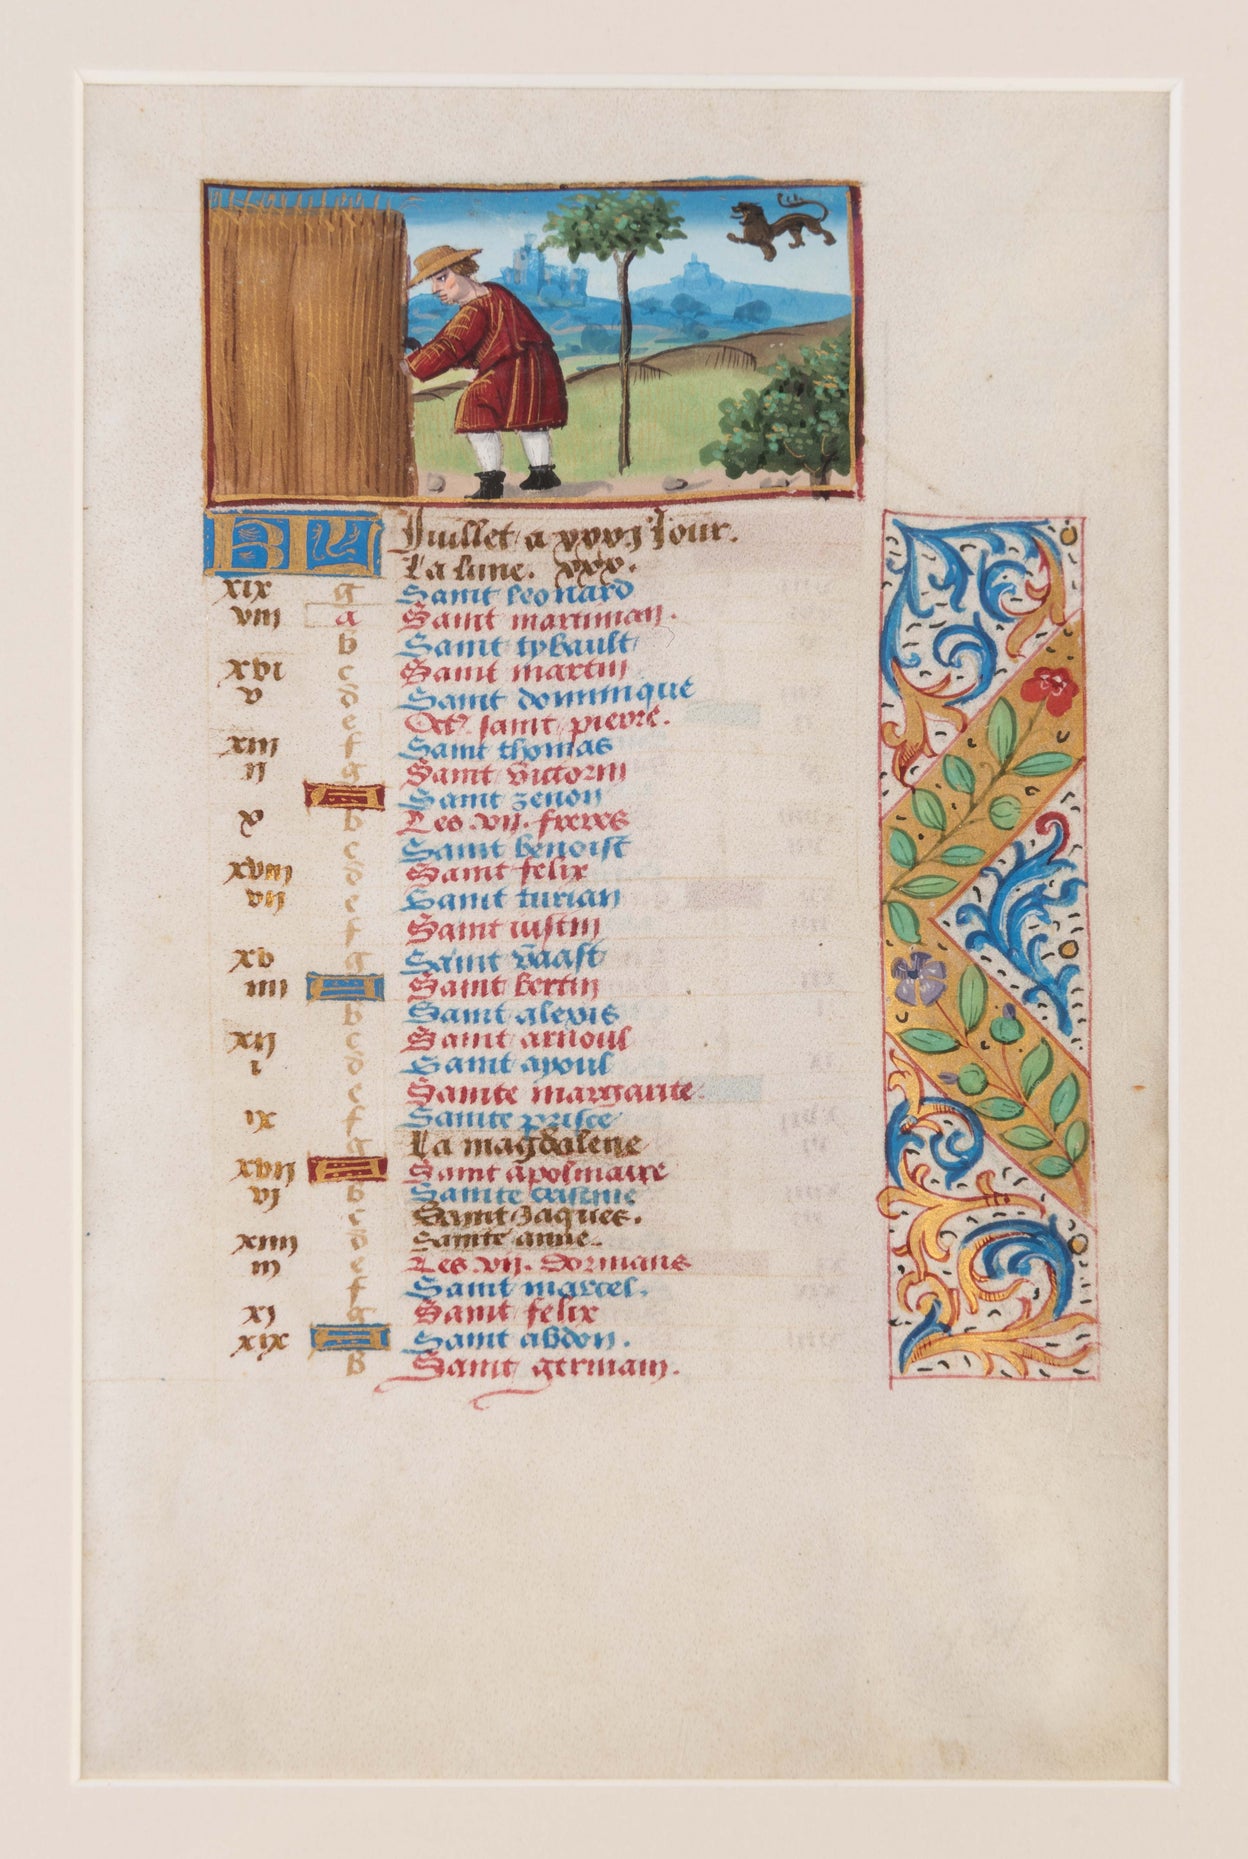 KL Juillet a xxxj Jour.
La lune. xxx.
xix g Saint leonard
viij a Saint martinian.
b Saint tybault
xvi c Saint martin
v d Saint dominique
e Oct. saint pierre.
xiij f Saint thomas
ij g Saint victorin
A Saint zenon
x b Les vij. freres
c Saint benoist
xviij d Saint felix
vij e Saint turian
f Saint iustin
xv g Saint vaast
iiij A Saint bertin
b Saint alexis
xij c Saint arnoul
i d Saint ayoul
e Sainte margarite.
ix f Sainte prisce
g La magdalene
xvij A Saint apolinaire
vj b Sainte cristine
c Saint Jaques.
xiiij d Sainte anne.
iij e Les vij. dormans
f Saint marcel.
xj g Saint felix
xix A Saint abdon.
B Saint germain.